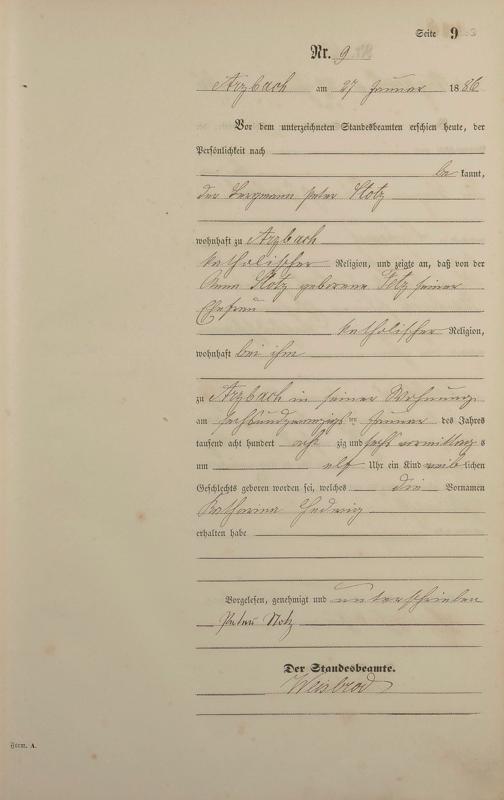 Seite 9
Nr. 9
Arzbach am 27 Januar 1886
Vor dem unterzeichneten Standesbeamten erschien heute, der
Persönlichkeit nach
be kannt,
der Bergmann Peter Stotz
wohnhaft zu Arzbach
katholischer Religion, und zeigte an, daß von der
Anna Stotz geborene seiner
Ehefrau
katholischer Religion,
wohnhaft bei ihm
zu Arzbach in seiner Wohnung
am sechsundzwanzigs ten Januar des Jahres
tausend acht hundert acht zig und sechs vormittag s
um elf Uhr ein Kind weib lichen
Geschlechts geboren worden sei, welches die Vornamen
Katharina Hedwig
erhalten habe
Vorgelesen, genehmigt und unterschrieben
Peter Stotz
Der Standesbeamte.
Weisbrod
Form. A.